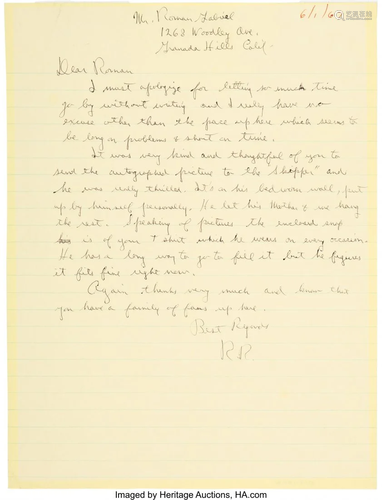 6/1/6
Mr. Roman Gabriel
1268 Woodley Ave.
Granada Hills Calif.
Dear Roman
I must apologize for letting so much time
go by without writing and I really have no
excuse other than the pace up here which seems to
be long on problems & short on time.
It was very kind and thoughtful of you to
send the autographed picture to the "Skipper" and
he was really thrilled. It's on his bedroom wall, put
up by himself personally. He let his Mother & me hang
the rest. Speaking of pictures the enclosed
is of your T shirt which he wears on every occasion.
He has a long way to go to fill it but he figures
it fits fine right now.
Again thanks very much and know that
you have a family of fans up here.
Best Regards
RR
Imaged by Heritage Auctions, HA.com